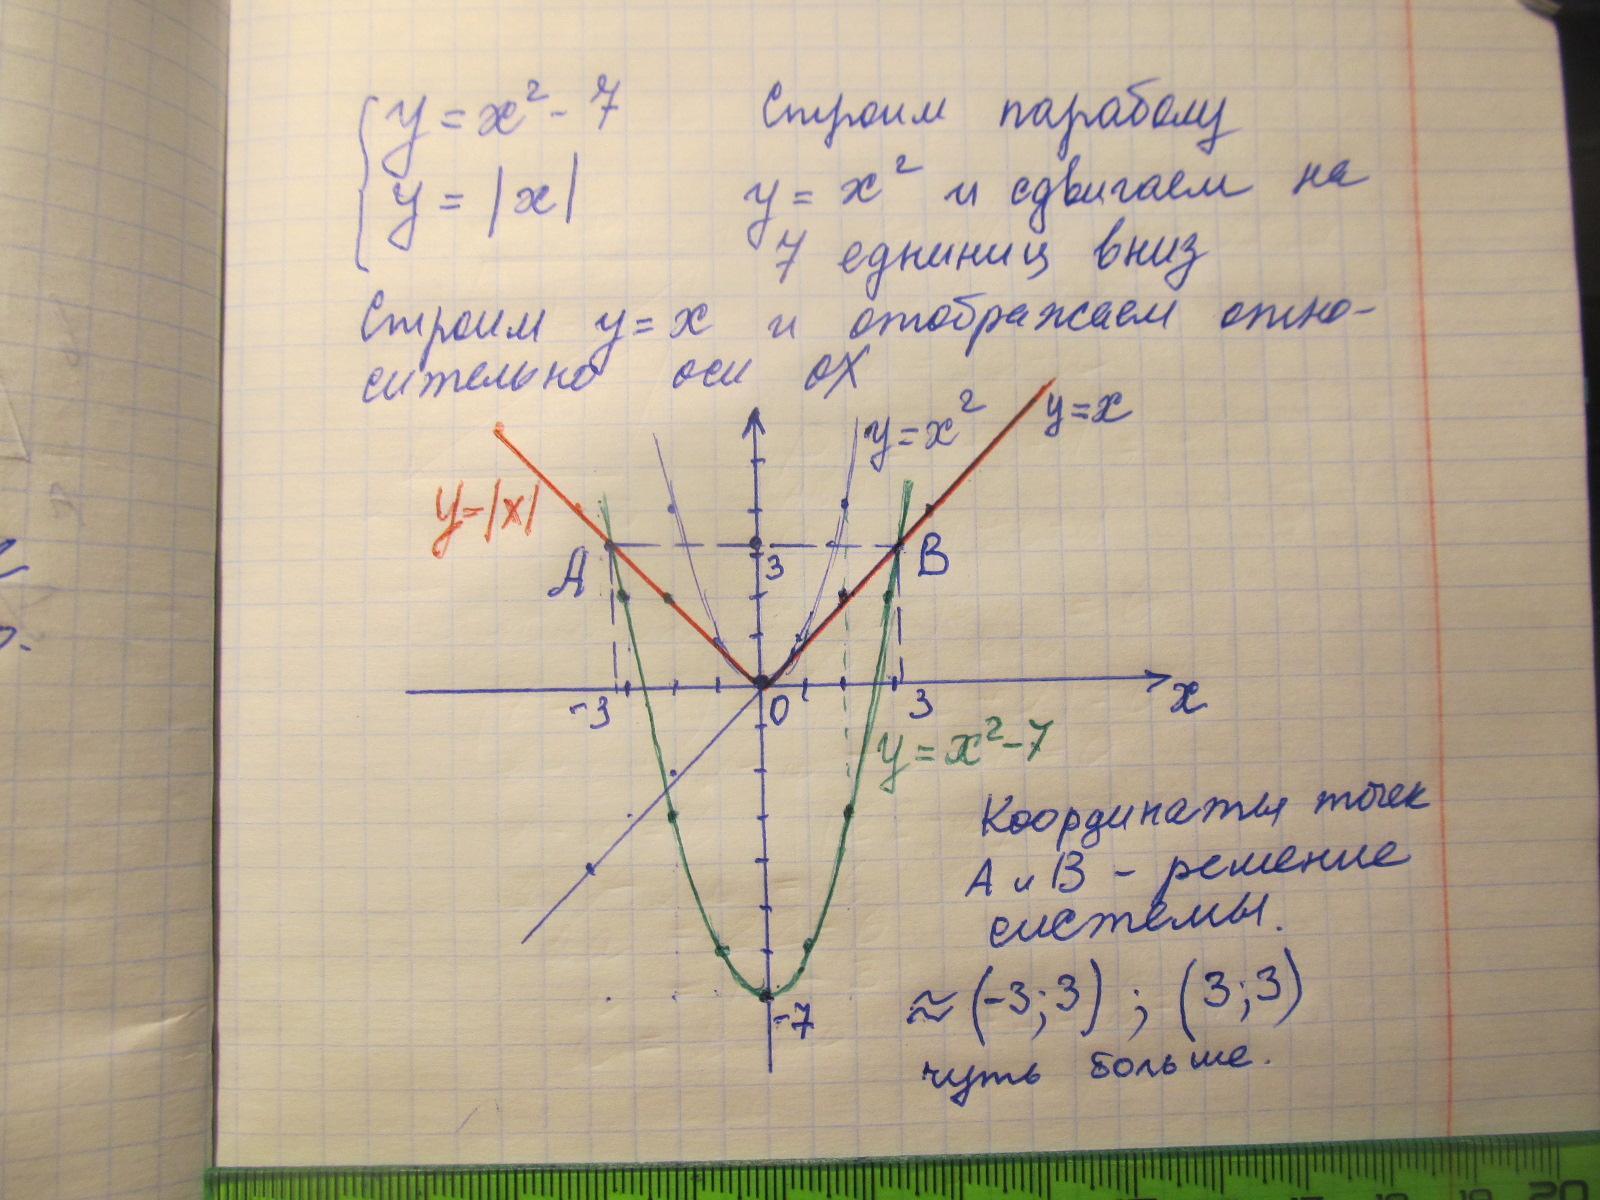 y = x² - 7
y = |x|
Строим параболу
y = x² и сдвигаем на
7 единиц вниз
Строим y = x и отображаем отно-
сительно оси ОХ
y = x²
y = x
y=|x|
A
3
B
-3
0
3
x
y = x² - 7
-7
Координаты точек
A и B - решение
системы.
≈ (-3;3) ; (3;3)
чуть больше.
20